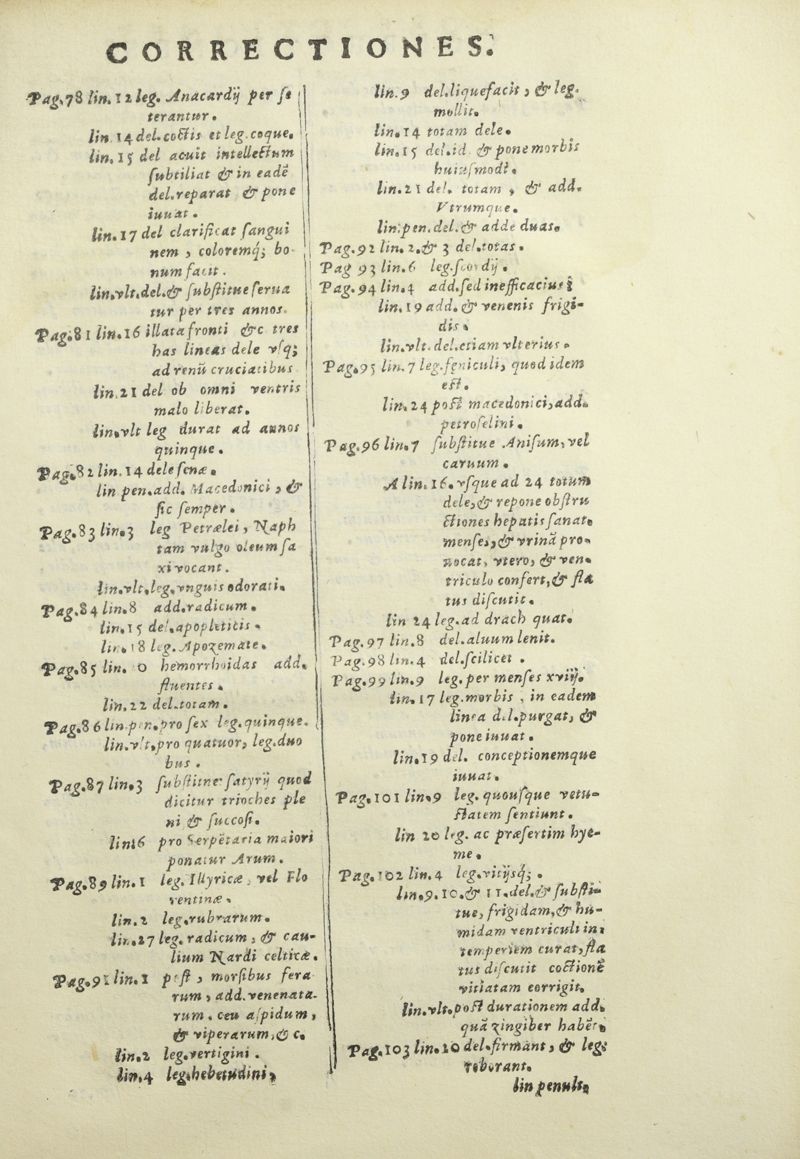 CORRECTIONES.
Pag.78 lin.12 leg. Anacardij per se
terantur.
lin.14 del.coctis et leg.coque.
lin.15 del acuit intellectum
subtiliat & in eadē
del.reparat & pone
iuuat.
lin.17 del clarificat sangui
nem, coloremq; bo-
num facit.
lin.vlt.del.& substitue serua
tur per tres annos.
Pag.81 lin.16 illata fronti &c tres
has lineas dele vsq;
ad renū cruciatibus
lin.21 del ob omni ventris
malo liberat.
lin.vlt leg durat ad annos
quinque.
Pag.82 lin.14 dele senæ.
lin pen.add. Macedonici, &
sic semper.
Pag.83 lin.3 leg Petrælei, Naph
tam vulgo oleum sa
xi vocant.
lin.vlt.leg.vnguis odorati.
Pag.84 lin.8 add.radicum.
lin.15 del.apopleticis.
lin.18 leg.Apozemate.
Pag.85 lin. 0 hemorrhoidas add.
fluentes.
lin.22 del.totam.
Pag.86 lin.pen.pro sex leg.quinque.
lin.vlt.pro quatuor, leg.duo
bus.
Pag.87 lin.3 substitue satyrij quod
dicitur trioches ple
ni & succosi.
lin16 pro Serpētaria maiori
ponatur Arum.
Pag.89 lin.1 leg. Illyricæ, vel Flo
rentinæ.
lin.2 leg.rubrarum.
lin.27 leg.radicum, & cau-
lium Nardi celticæ.
Pag.91 lin.1 post, morsibus fera
rum, add.venenata-
rum. ceu aspidum,
& viperarum,& c.
lin.2 leg.vertigini.
lin.4 leg.hebetudini,
lin.9 del.liquefacit, & leg.
mollit.
lin.14 totam dele.
lin.15 del.id. & pone morbis
huiusmodi.
lin.21 del. totam, & add.
Vtrumque.
lin.pen.del.& adde duas.
Pag.92 lin.2.& 3 del.totas.
Pag 93 lin.6 leg.scordij.
Pag.94 lin.4 add.sed inefficacius
lin.19 add.& venenis frigi-
dis.
lin.vlt.del.etiam vlterius.
Pag.95 lin.7 leg.fęniculi, quod idem
est.
lin.24 post macedonici,add.
petroselini.
Pag.96 lin.7 substitue Anisum,vel
caruum.
A lin.16.vsque ad 24 totum
dele,& repone obstru
ctiones hepatis sanat.
menses,& vrinā pro-
uocat, vtero, & ven-
triculo confert,& fla
tus discutit.
lin 24 leg.ad drach quat.
Pag.97 lin.8 del.aluum lenit.
Pag.98 lin.4 del.scilicet.
Pag.99 lin.9 leg.per menses xviij.
lin.17 leg.morbis, in eadem
linea del.purgat, &
pone iuuat.
lin.19 del. conceptionemque
iuuat.
Pag.101 lin.9 leg. quousque vetu-
statem sentiunt.
lin 20 leg. ac præsertim hye-
me.
Pag.102 lin.4 leg.vitijsq;.
lin.9.10.& 11.del.& substi-
tue, frigidam,& hu-
midam ventriculi in
temperiem curat,fla
tus discutit coctionē
vitiatam corrigit.
lin.vlt.post durationem add.
quā zingiber habēt.
Pag.103 lin.20 del.firmant, & leg.
roborant.
lin penult.